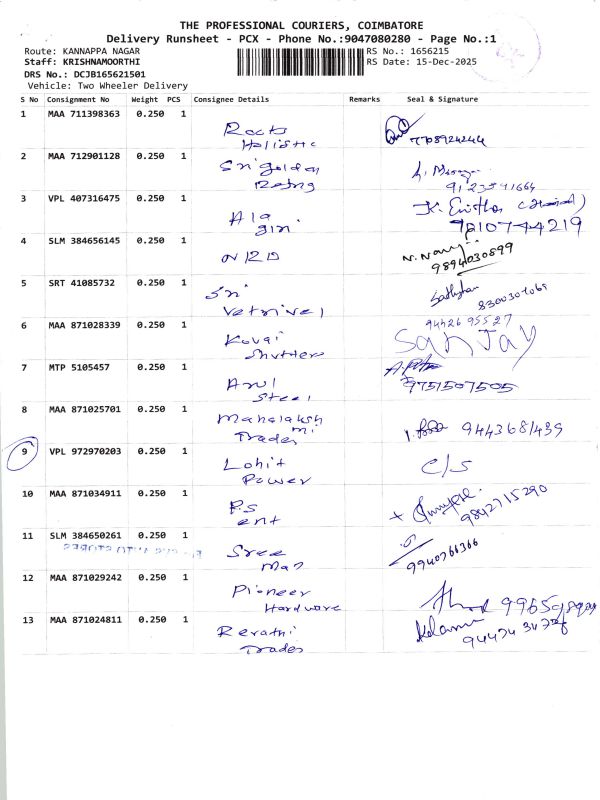 THE PROFESSIONAL COURIERS, COIMBATORE
Delivery Runsheet - PCX - Phone No.:9047080280 - Page No.:1
Route: KANNAPPA NAGAR RS No.: 1656215
Staff: KRISHNAMOORTHI RS Date: 15-Dec-2025
DRS No.: DCJB165621501
Vehicle: Two Wheeler Delivery
S No Consignment No Weight PCS Consignee Details Remarks Seal & Signature
1 MAA 711398363 0.250 1
Holistic
2 MAA 712901128 0.250 1 Sri golden
3 VPL 407316475 0.250 1 Ala 9810744219
giri
4 SLM 384656145 0.250 1 N. 9894030899
5 SRT 41085732 0.250 1 Sri
Vetrivel
6 MAA 871028339 0.250 1 Kovai 94426 95527
Shutters SANJAY
7 MTP 5105457 0.250 1 Arul 9751507505
Steel
8 MAA 871025701 0.250 1 Mahalaksh
mi
Trades
9 VPL 972970203 0.250 1 Lohit C/S
Power
10 MAA 871034911 0.250 1 P.S 9842715290
ent
11 SLM 384650261 0.250 1 Sree 9940766366
12 MAA 871029242 0.250 1 Pioneer
Hardware
13 MAA 871024811 0.250 1
Trades